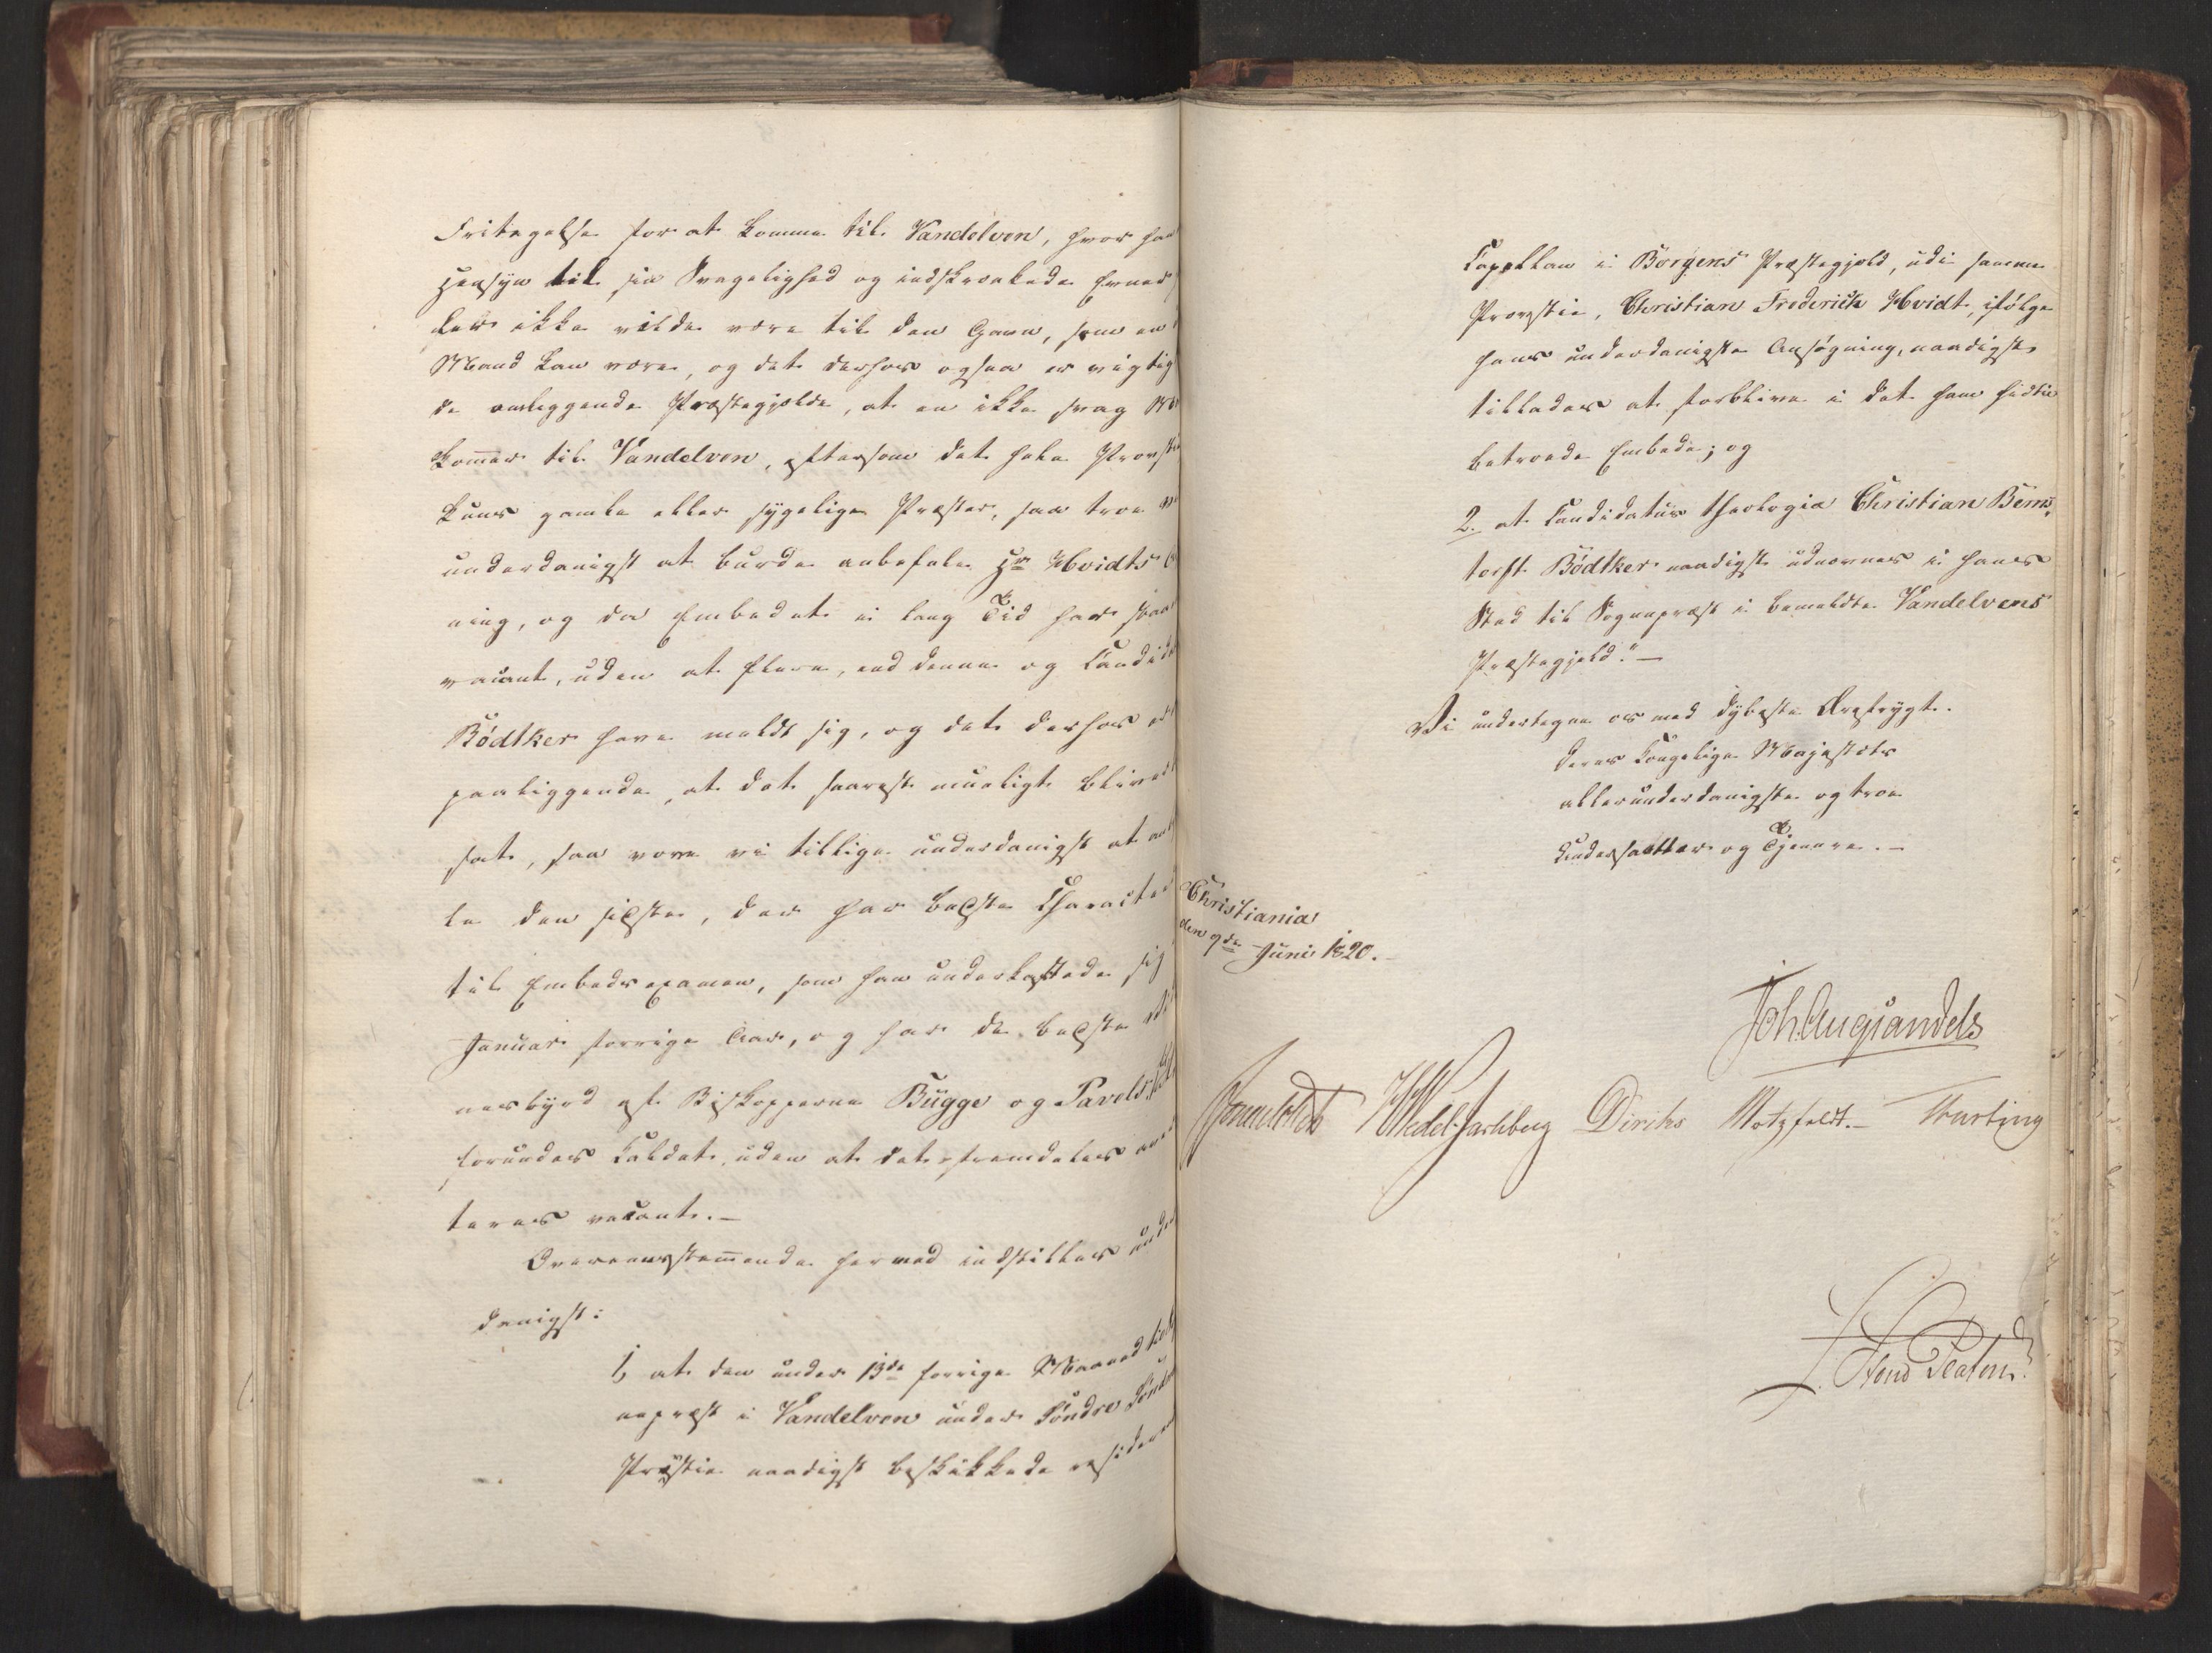 Fritagelse for at komme til Vandelven, hvor han
Hensyn til sin Svagelighed og indskrænkede Evner
ler ikke vilde være til den Gavn, som en
Mand kan være, og det derhos ogsaa er vigtig
de omliggende Præstegjelde, at en ikke svag
kommer til Vandelven, eftersom det hele Provstie
kuns gamle eller sygelige Præster, saa troe vi
underdanigst at burde anbefale Hr Hvidts
ning, og da Embedet i lang Tid har staaet
vacant, uden at flere, end denne og Candidat
Bödtker have meldt sig, og det derhos er
paaliggende, at det snarest mueligt bliver
sat, saa vove vi tillige underdanigst at
le den sidste, der har bedste Character
til Embedsexamen, som han underkastede sig
Januar forrige Aar, og har de bedste
nesbyrd af Biskopperne Bugge og Pavels,
forundes Kaldet, uden at det fremdeles
teres vacant.—
Overeensstemmende hermed indstilles under
danigst:
1, at den under 13de forrige Maaned til
nepræst i Vandelven under Söndre Söndmørs
Provstie naadigst beskikkede residerende
Capellan i Borgens Præstegjeld, udi samme
Provstie, Christian Frederich Hvidt, ifölge
hans underdanigste Ansögning, naadigst
tillades at forblive i det ham hidtil
betroede Embede; og
2. at Candidatus theologiæ Christian Berns-
torff Bödtker naadigst udnævnes i hans
Sted til Sognepræst i bemeldte Vandelvens
Præstegjeld."—
Vi undertegne os med dybeste Ærefrygt.
Deres Kongelige Majestæts
allerunderdanigste og troe
Undersaatter og Tjenere.—
Christiania
den 9de Juni 1820.
Joh. Aug. Sandels
Sommerhielm HWedel-Jarlsberg Diriks Motzfeldt.— Treschow